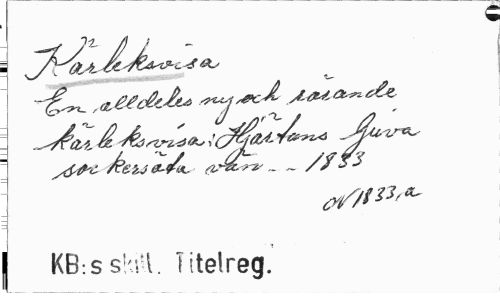 Kärleksvisa
En alldeles ny och rörande
kärleksvisa: Hjärtans Giva
sockersöta vän - - 1833
OV 1833, a
KB:s skill. Titelreg.